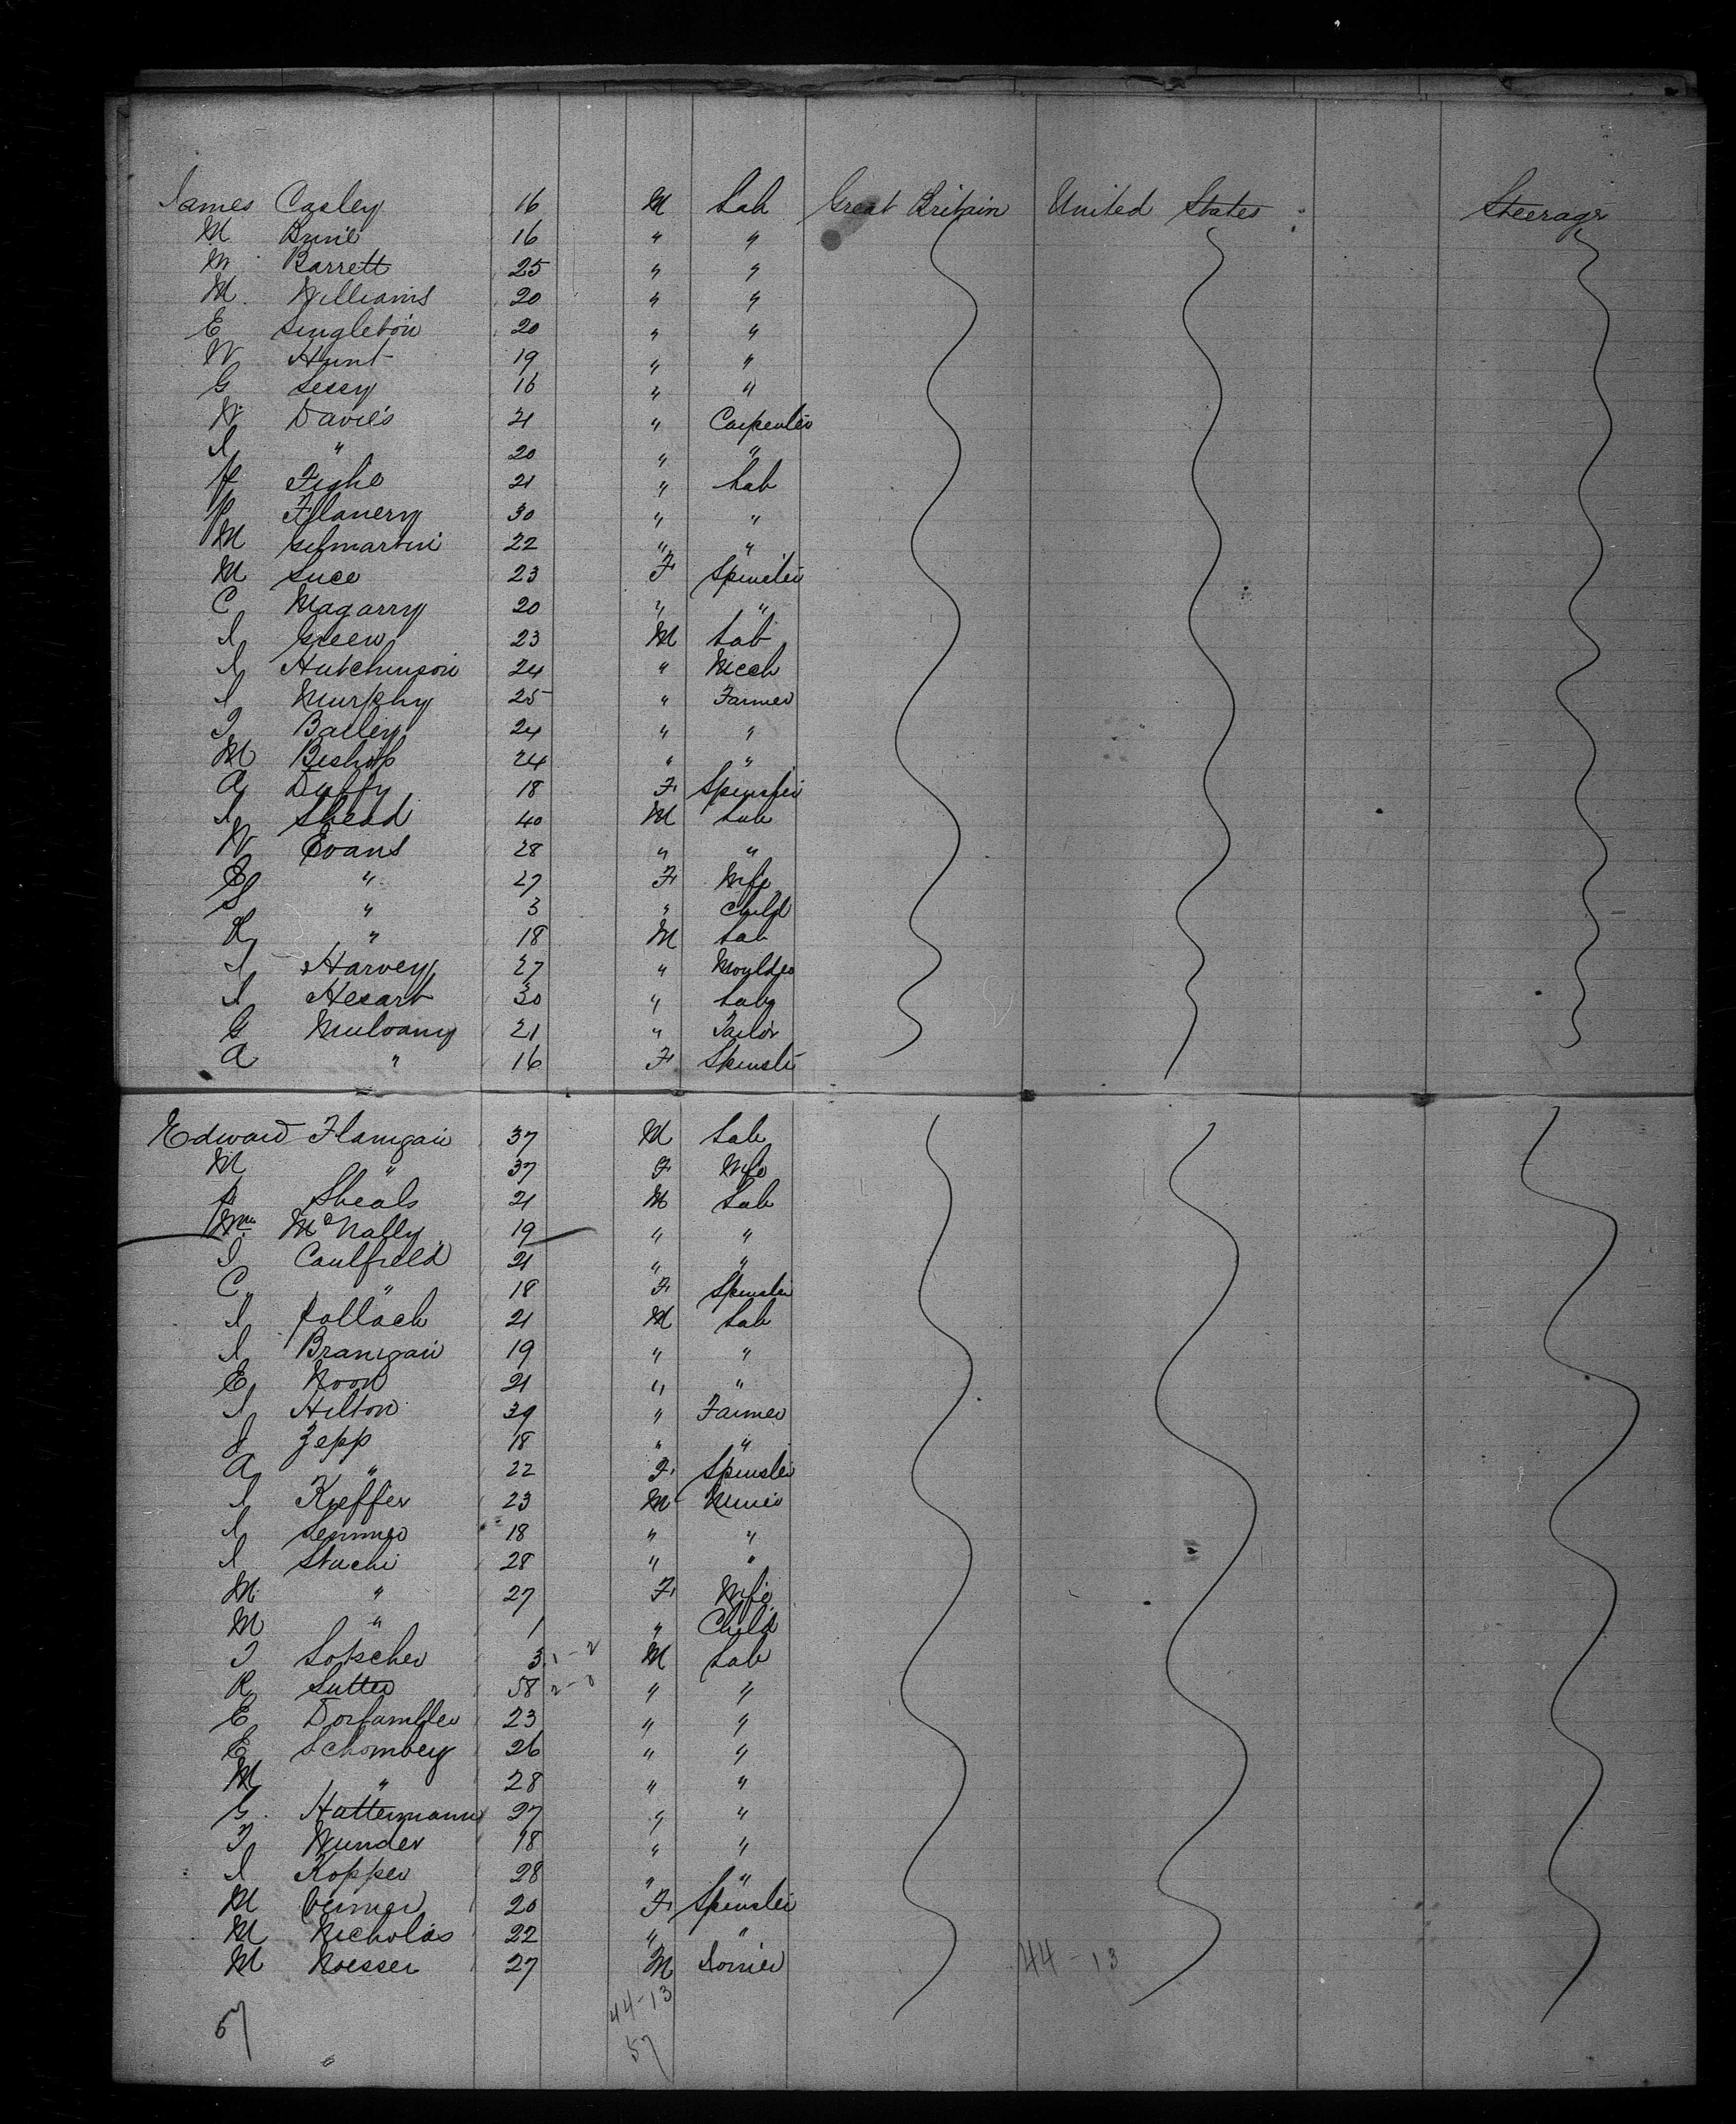 James Casley 16 M Lab Great Britain United States Steerage
M 16 " "
W Barrett 25 " "
M Williams 20 " "
E Singleton 20 " "
W Hunt 19 " "
G 16 " "
W Davies 21 " Carpenter
J " 20 " "
Tighe 21 " Lab
P Flanery 30 " "
M Gilmartin 22 " "
M Luce 23 F Spinster
C Magarry 20 " "
J Green 23 M Lab
J Hutchinson 24 " Mech
J Murphy 25 " Farmer
T Bailey 24 " "
M Bishop 24 " "
A Duffy 18 F Spinster
J Shead 40 M Lab
W Evans 28 " "
E " 27 F Wife
S " 3 " Child
" 18 M Lab
J Harvey 27 " Moulder
J 30 " Lab
G Mulvany 21 " Tailor
A " 16 F Spinster
Edward Flanigan 37 M Lab
M " 37 F Wife
P Sheals 21 M Lab
Wm McNally 19 " "
J Caulfield 21 " "
C " 18 F Spinster
J Pollach 21 M Lab
J Branigan 19 " "
E Noon 21 " "
J Hilton 39 " Farmer
J Zepp 18 " "
A " 22 F Spinster
J Kieffer 23 M Miner
J Lemmer 18 " "
J Stachi 28 " "
M " 27 F Wife
M " 1 " Child
3 1-2 M Lab
R Sutter 58 2-0 " "
E 23 " "
E Schomberg 26 " "
M " 28 " "
G Hattermann 27 " "
J Wunder 18 " "
J Kopper 28 " "
M 20 F Spinster
M Nicholas 22 " "
M Noesser 27 M 44-13
44-13
57 57
"